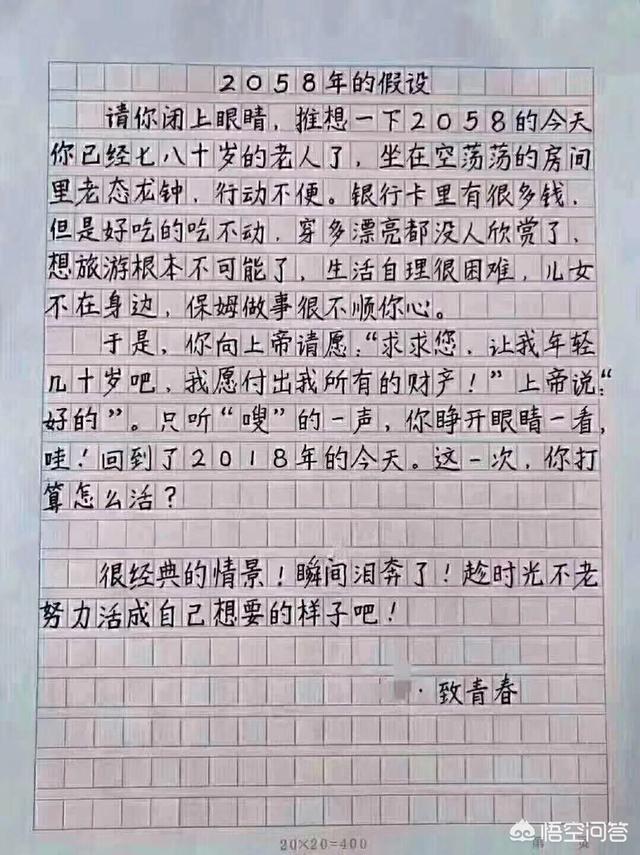 2058年的假设
请你闭上眼睛，推想一下2058的今天
你已经七八十岁的老人了，坐在空荡荡的房间
里老态龙钟，行动不便。银行卡里有很多钱，
但是好吃的吃不动，穿多漂亮都没人欣赏了，
想旅游根本不可能了，生活自理很困难，儿女
不在身边，保姆做事很不顺你心。
于是，你向上帝请愿：“求求您，让我年轻
几十岁吧，我愿付出我所有的财产！”上帝说：“
好的”。只听“嗖”的一声，你睁开眼睛一看，
哇！回到了2018年的今天。这一次，你打
算怎么活？
很经典的情景！瞬间泪奔了！趁时光不老
努力活成自己想要的样子吧！
·致青春
20×20=400
第 页
悟空问答